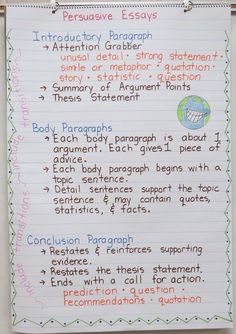 Persuasive Essays
Introductory Paragraph
→ Attention Grabber
unusal detail • strong statement •
simile or metaphor • quotation •
story • statistic • question
→ Summary of Argument Points
→ Thesis Statement
Body Paragraphs
→ Each body paragraph is about 1
argument. Each gives 1 piece of
advice.
→ Each body paragraph begins with a
topic sentence.
→ Detail sentences support the topic
sentence & may contain quotes,
statistics, & facts.
Conclusion Paragraph
→ Restates & reinforces supporting
evidence.
→ Restates the thesis statement.
→ Ends with a call for action.
prediction • question •
recommendations • quotation
include transitions